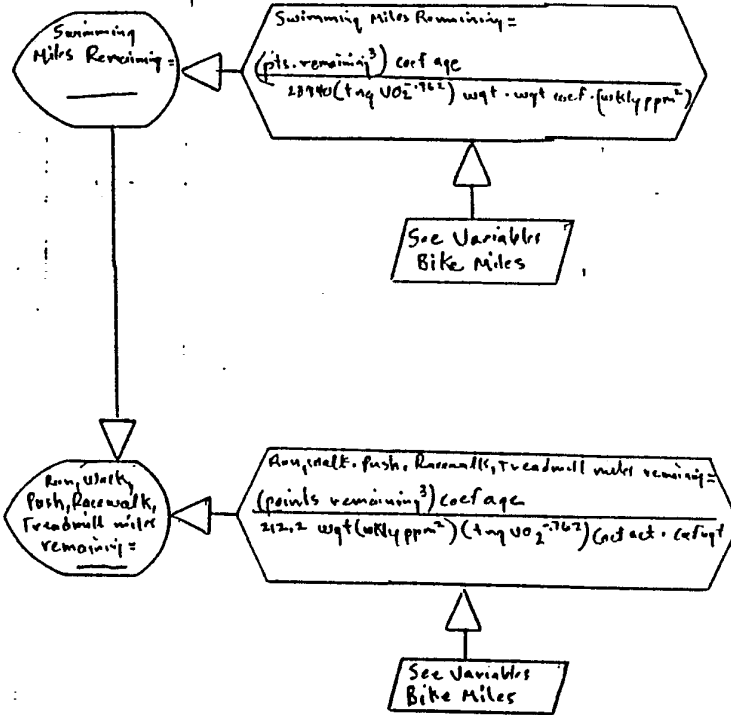 Swimming
Miles Remaining =
Swimming Miles Remaining =
(pts. remaining³) coef age
(tng VO₂^-.762) wgt · wgt coef · (wkly ppm²)
See Variables
Bike Miles
Run, Walk,
Push, Racewalk,
Treadmill miles
remaining =
Run, walk, Push, Racewalk, Treadmill miles remaining =
(points remaining³) coef age
212.2 wgt (wkly ppm²) (tng VO₂^-.762) Coef act · coef wgt
See Variables
Bike Miles